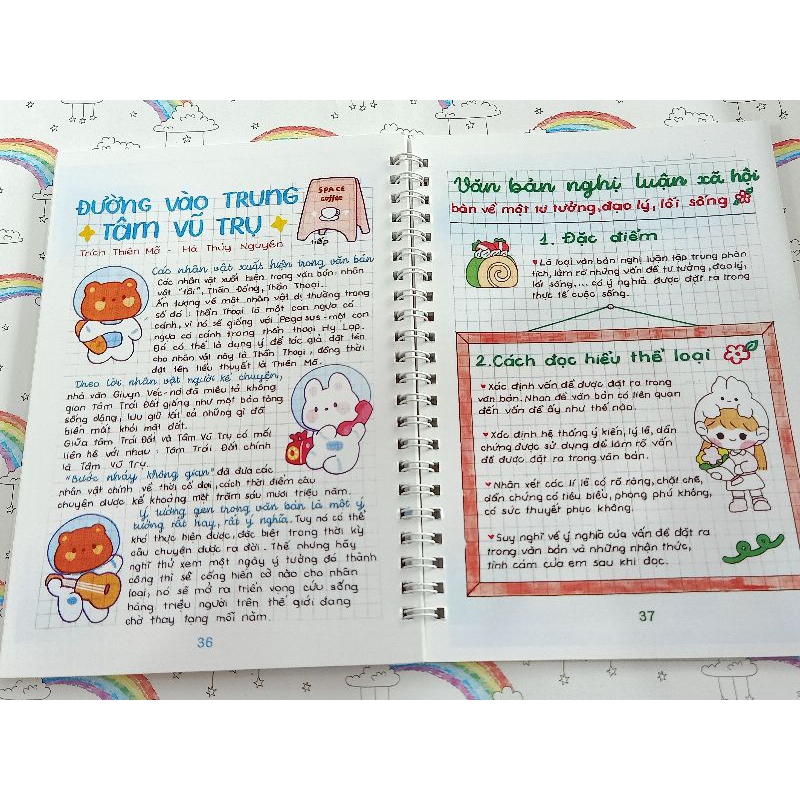 ĐƯỜNG VÀO TRUNG
TÂM VŨ TRỤ
Trích Thiên Mã - Hà Thủy Nguyên
SPACE
coffee
tiếp
Các nhân vật xuất hiện trong văn bản
Các nhân vật xuất hiện trong văn bản: nhân
vật "tôi", Thần Đồng, Thần Thoại...
Ấn tượng về một nhân vật dị thường trong
số đó: Thần Thoại là một con ngựa có
cánh, vì nó sẽ giống với Pegasus - một con
ngựa có cánh trong thần thoại Hy Lạp.
Đó có thể là dụng ý để tác giả đặt tên
cho nhân vật này là Thần Thoại, đồng thời
đặt tên tiểu thuyết là Thiên Mã.
Theo lời nhân vật người kể chuyện,
nhà văn Giuyn Véc-nơ đã miêu tả không
gian Tâm Trái Đất giống như một bảo tàng
sống động, lưu giữ tất cả những gì đã
biến mất khỏi mặt đất.
Giữa Tâm Trái Đất và Tâm Vũ Trụ có mối
liên hệ với nhau: Tâm Trái Đất chính
là Tâm Vũ Trụ.
"Bước nhảy không gian" đã đưa các
nhân vật chính về thời cổ đại, cách thời điểm câu
chuyện được kể khoảng một trăm sáu mươi triệu năm.
Ý tưởng gen trong văn bản là một ý
tưởng rất hay, rất ý nghĩa. Tuy nó có thể
khó thực hiện được, đặc biệt trong thời kỳ
câu chuyện được ra đời. Thế nhưng hãy
nghĩ thử xem một ngày ý tưởng đó thành
công thì sẽ cống hiến cỡ nào cho nhân
loại, nó sẽ mở ra triển vọng cứu sống
hàng triệu người trên thế giới đang
chờ thay tạng mỗi năm.
36
Văn bản nghị luận xã hội
bàn về một tư tưởng, đạo lý, lối sống
1. Đặc điểm
♥Là loại văn bản nghị luận tập trung phân
tích, làm rõ những vấn đề tư tưởng, đạo lý,
lối sống,... có ý nghĩa được đặt ra trong
thực tế cuộc sống.
2.Cách đọc hiểu thể loại
♥Xác định vấn đề được đặt ra trong
văn bản. Nhan đề văn bản có liên quan
đến vấn đề ấy như thế nào.
♥Xác định hệ thống ý kiến, lý lẽ, dẫn
chứng được sử dụng để làm rõ vấn
đề được đặt ra trong văn bản.
♥Nhận xét các lí lẽ có rõ ràng, chặt chẽ,
dẫn chứng có tiêu biểu, phong phú không,
có sức thuyết phục không.
♥Suy nghĩ về ý nghĩa của vấn đề đặt ra
trong văn bản và những nhận thức,
tình cảm của em sau khi đọc.
37